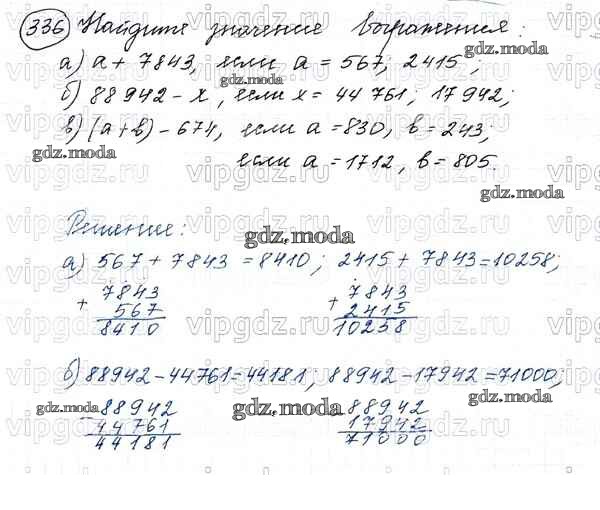 336 Найдите значение выражения:
а) а + 7843, если а = 567; 2415;
б) 88942 - х, если х = 44761; 17942;
в) (а+в) - 674, если а = 830, в = 243;
если а = 1712, в = 805.
Решение:
а) 567 + 7843 = 8410; 2415 + 7843 = 10258;
7843 7843
+ 567 + 2415
8410 10258
б) 88942 - 44761 = 44181; 88942 - 17942 = 71000;
88942 88942
- 44761 - 17942
44181 71000
vipgdz.ru
gdz.moda